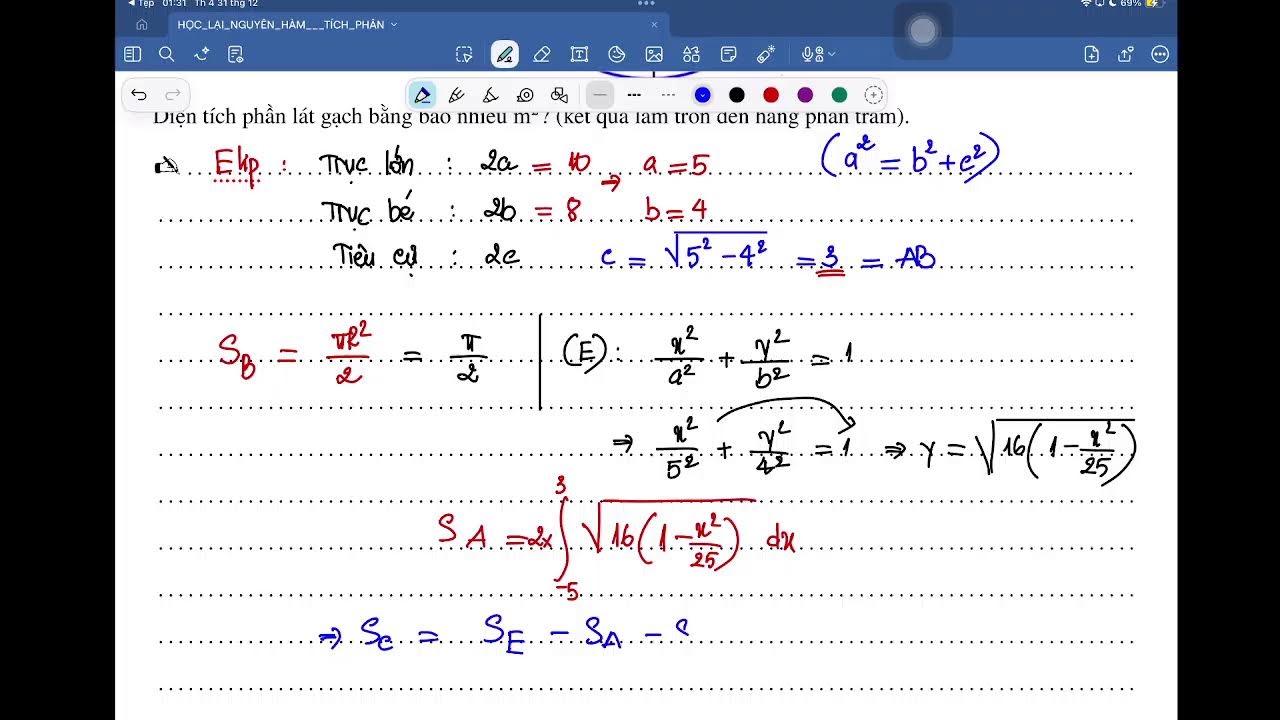 Tệp 01:31 Th 4 31 thg 12 69%
HỌC_LẠI_NGUYÊN_HÀM___TÍCH_PHÂN
Diện tích phần lát gạch bằng bao nhiêu m²? (kết quả làm tròn đến hàng phần trăm).
Elip : Trục lớn : 2a = 10 → a = 5 (a² = b² + c²)
Trục bé : 2b = 8 b = 4
Tiêu cự : 2c c = √(5² - 4²) = 3 = AB
S_B = πR²/2 = π/2 (E) : x²/a² + y²/b² = 1
⇒ x²/5² + y²/4² = 1 ⇒ y = √(16(1 - x²/25))
S_A = 2x ∫_{-5}^{3} √(16(1 - x²/25)) dx
⇒ S_C = S_E - S_A - S